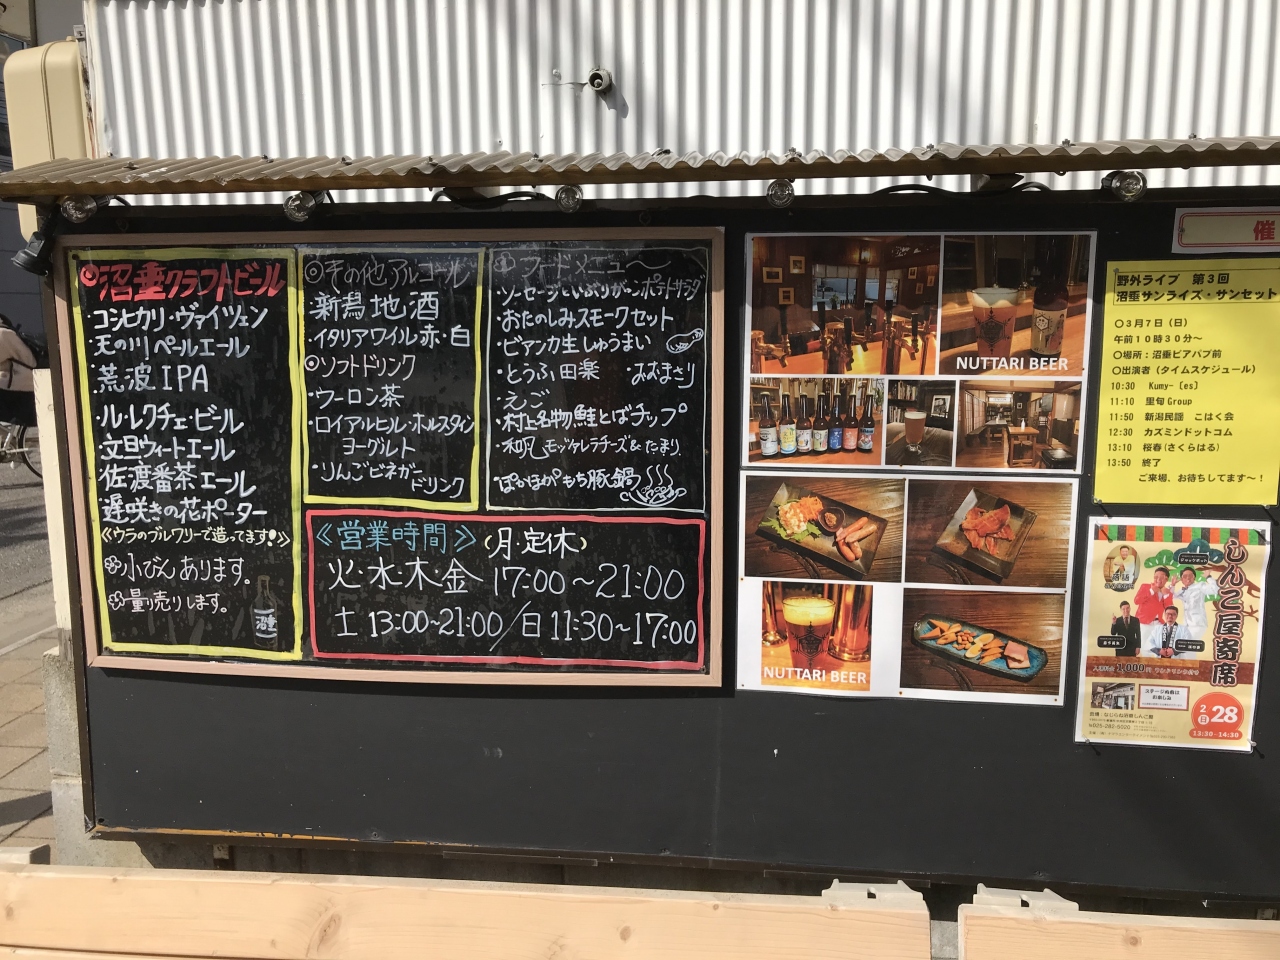 ◎沼垂クラフトビール
コシヒカリ・ヴァイツェン
天の川ペールエール
荒波IPA
・ル・レクチェ・ビール
文旦ウィートエール
佐渡番茶エール
遅咲きの花ポーター
《ウラのブルワリーで造ってます!》
小びんあります。
量り売りします。
沼垂
◎その他アルコール
新潟地酒
・イタリアワイル赤・白
◎ソフトドリンク
・ウーロン茶
・ロイアルヒル・ホルスタイン
ヨーグルト
・りんごビネガー
ドリンク
フードメニュー
・ソーセージといぶりがっこポテトサラダ
・おたのしみスモークセット
・ビアンカ生しゅうまい
・とうふ田楽 ・おむまさり
・えご
・村上名物鮭とばチップ
モッツァレラチーズ&たまり
ぽかぽかもち豚鍋
《営業時間》(月・定休)
火・水・木・金 17:00〜21:00
土 13:00〜21:00/日 11:30〜17:00
NUTTARI BEER
NUTTARI BEER
催
野外ライブ 第3回
沼垂サンライズ・サンセット
○3月7日(日)
午前10時30分〜
○場所:沼垂ビアパブ前
○出演者(タイムスケジュール)
10:30 Kumy-[es]
11:10 里旬Group
11:50 新潟民謡 こはく会
12:30 カズミンドットコム
13:10 桜春(さくらはる)
13:50 終了
ご来場、お待ちしてます〜!
しんこ屋寄席
落語
1,000円
ステージ処女は
2
日
28
13:30-14:30
025-282-5020